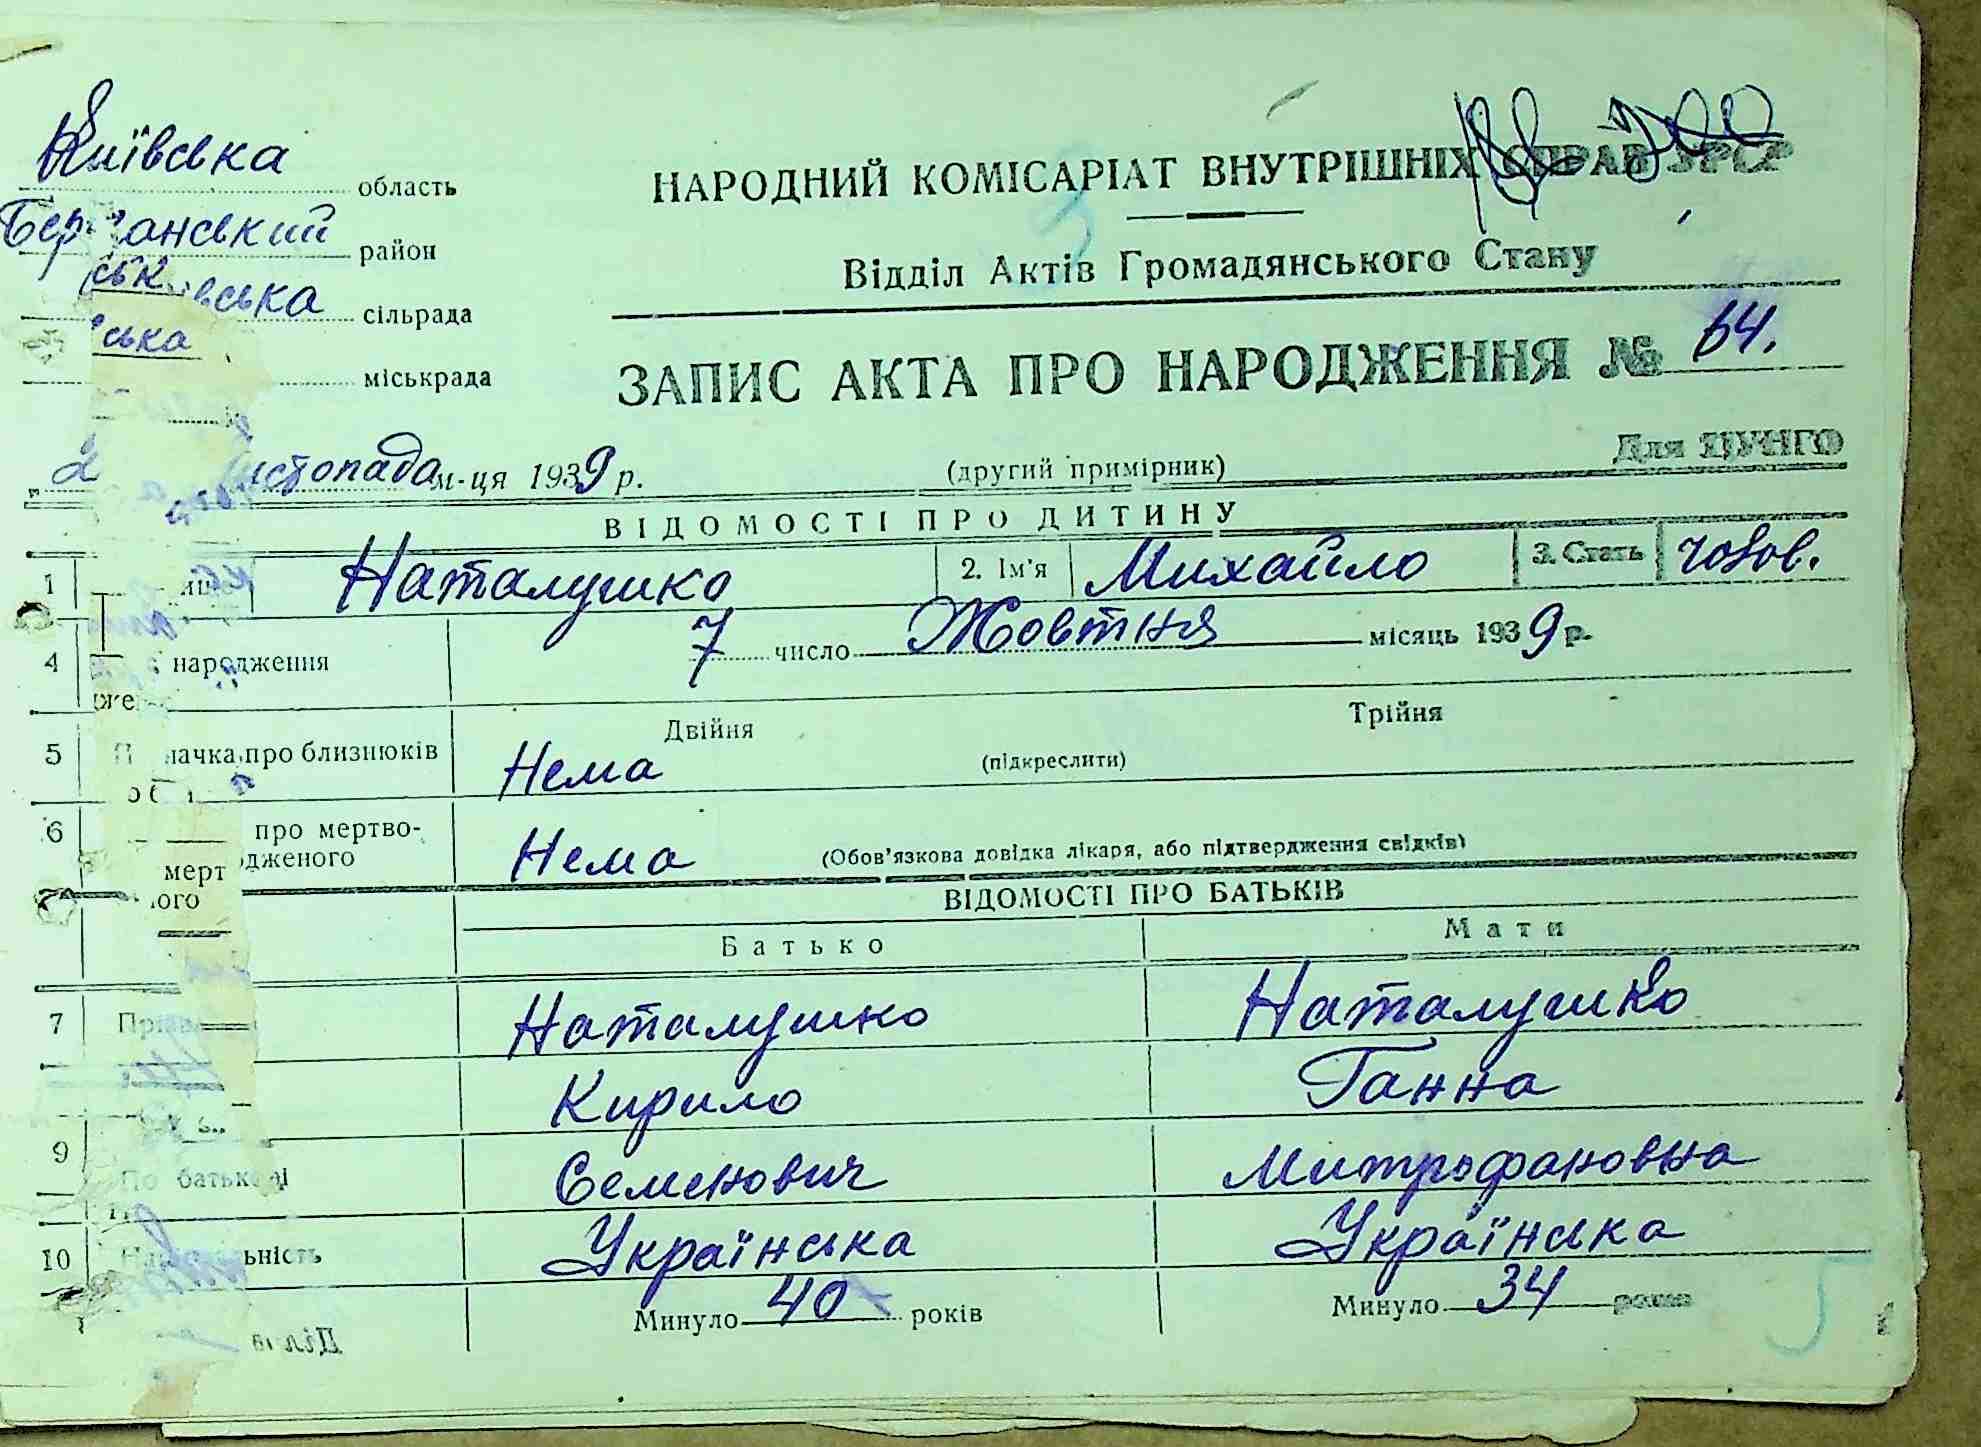 Київська область
НАРОДНИЙ КОМІСАРІАТ ВНУТРІШНІХ СПРАВ УРСР
район
Відділ Актів Громадянського Стану
сільрада
ська
міськрада
ЗАПИС АКТА ПРО НАРОДЖЕННЯ № 64.
листопада м-ця 1939 р.
(другий примірник)
Для ЦУНГО
ВІДОМОСТІ ПРО ДИТИНУ
1 Наталушко 2. Ім'я Михайло 3. Стать чолов.
4 народження 7 число Жовтня місяць 1939 р.
5 про близнюків Двійня Трійня
Нема (підкреслити)
6 про мертво-
Нема (Обов'язкова довідка лікаря, або підтвердження свідків)
ВІДОМОСТІ ПРО БАТЬКІВ
Батько Мати
7 Наталушко Наталушко
Кирило Ганна
9 По батькові Семенович Митрофановна
10 Українська Українська
Минуло 40 років Минуло 34 років